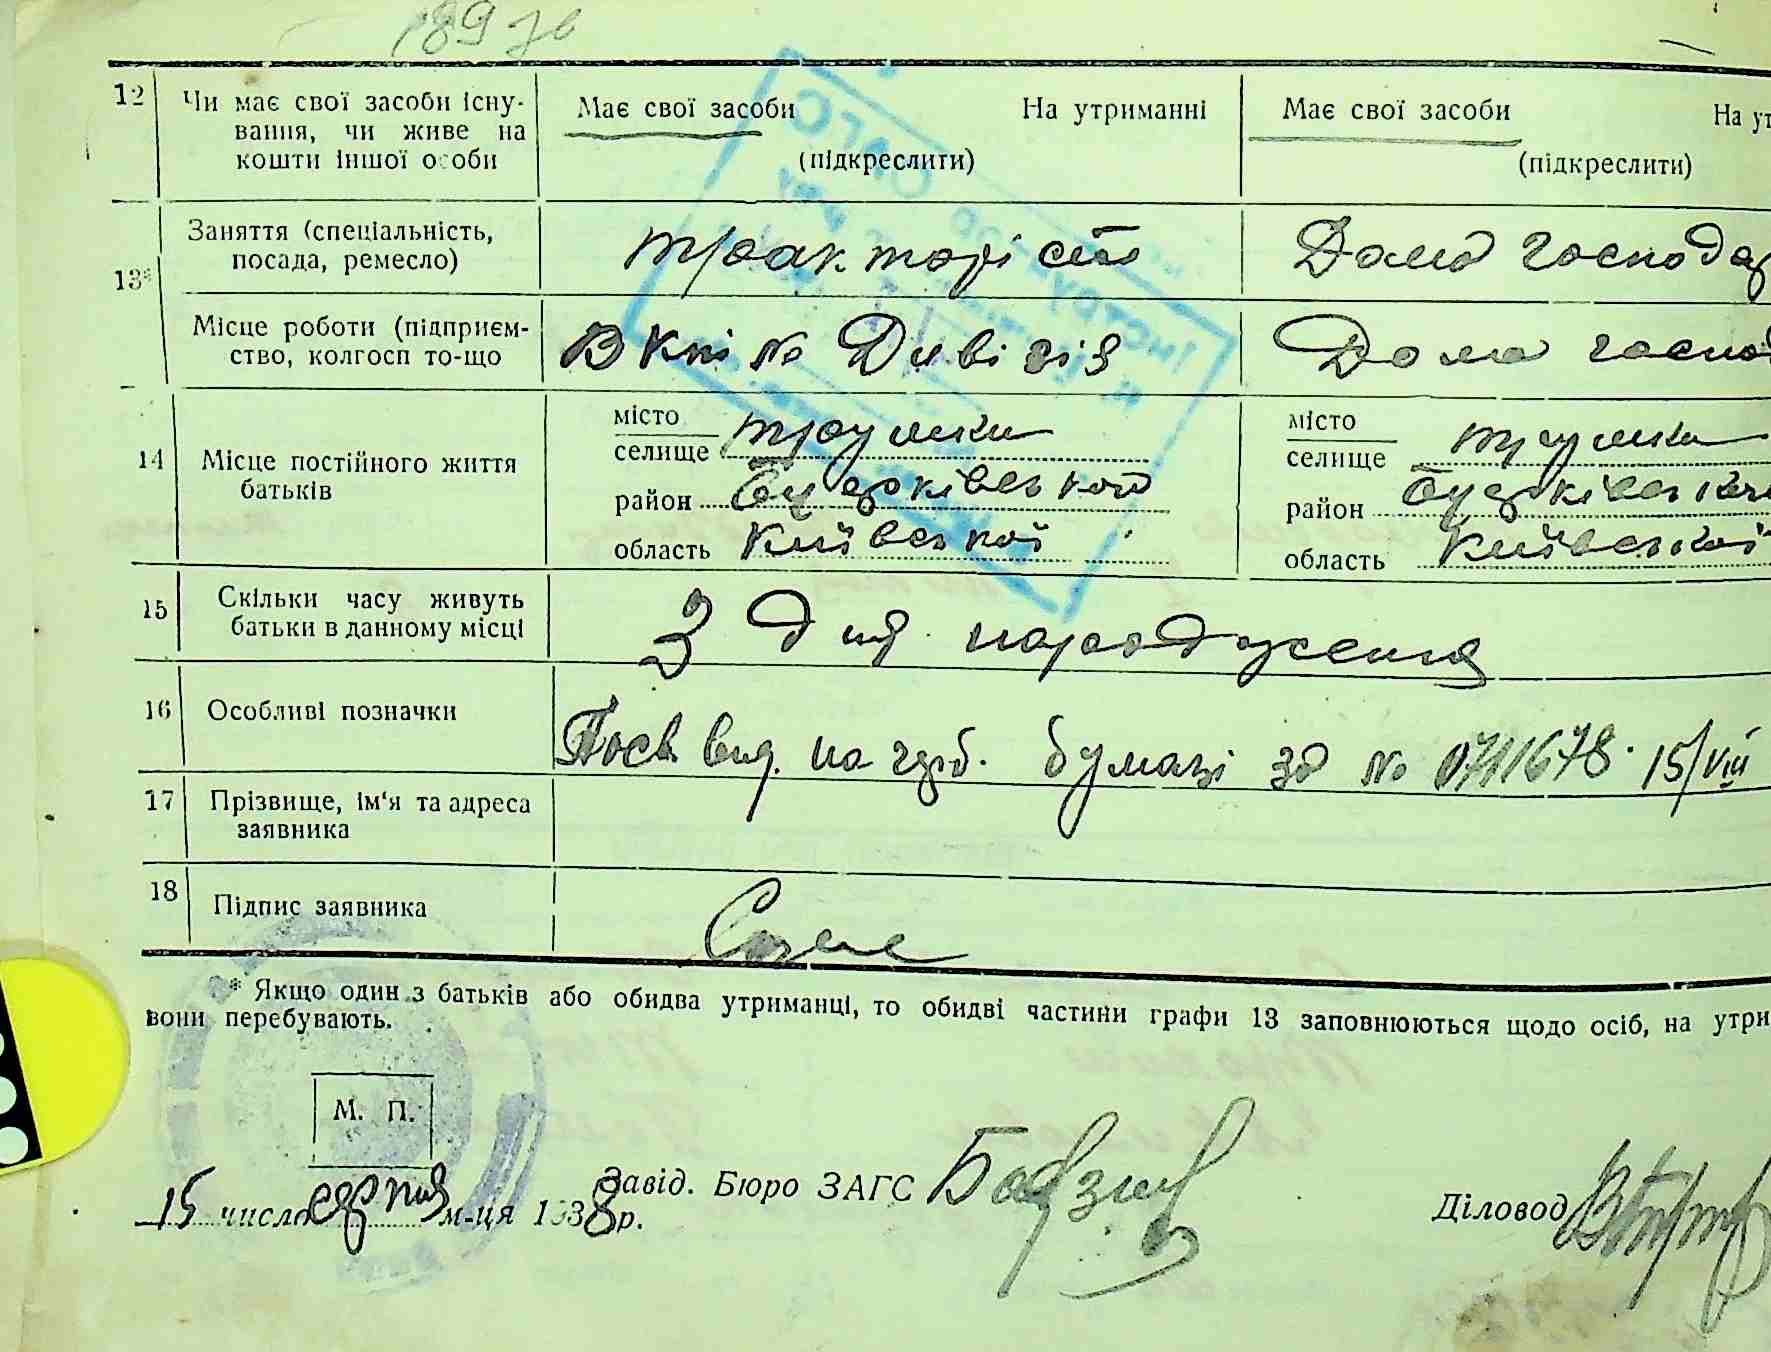 12 Чи має свої засоби існу-
вання, чи живе на
кошти іншої особи
Має свої засоби На утриманні
(підкреслити)
Має свої засоби На ут
(підкреслити)
13* Заняття (спеціальність,
посада, ремесло)
тракторіст
Дома господар
Місце роботи (підприєм-
ство, колгосп то-що
В к-пі № Дивізія
Дома госпо
14 Місце постійного життя
батьків
місто
селище Трушки
район
область Київської
місто
селище Трушки
район
область Київської
15 Скільки часу живуть
батьки в данному місці
З дня народження
16 Особливі позначки
Посв. вид. на герб. бумазі за № 0711678. 15/VIII
17 Прізвище, ім'я та адреса
заявника
18 Підпис заявника
* Якщо один з батьків або обидва утриманці, то обидві частини графи 13 заповнюються щодо осіб, на утри
вони перебувають.
М. П.
15 число серпня м-ця 1938 р.
Завід. Бюро ЗАГС
Діловод